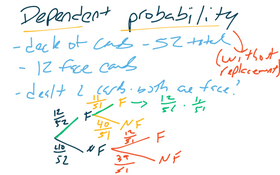 Dependent probability
- deck of cards - 52 total
(without replacement)
- 12 face cards
- dealt 2 cards. both are face?
12/52 F 11/51 F → 12/52 · 11/51
40/51 NF
40/52 NF 12/51 F
39/51 NF